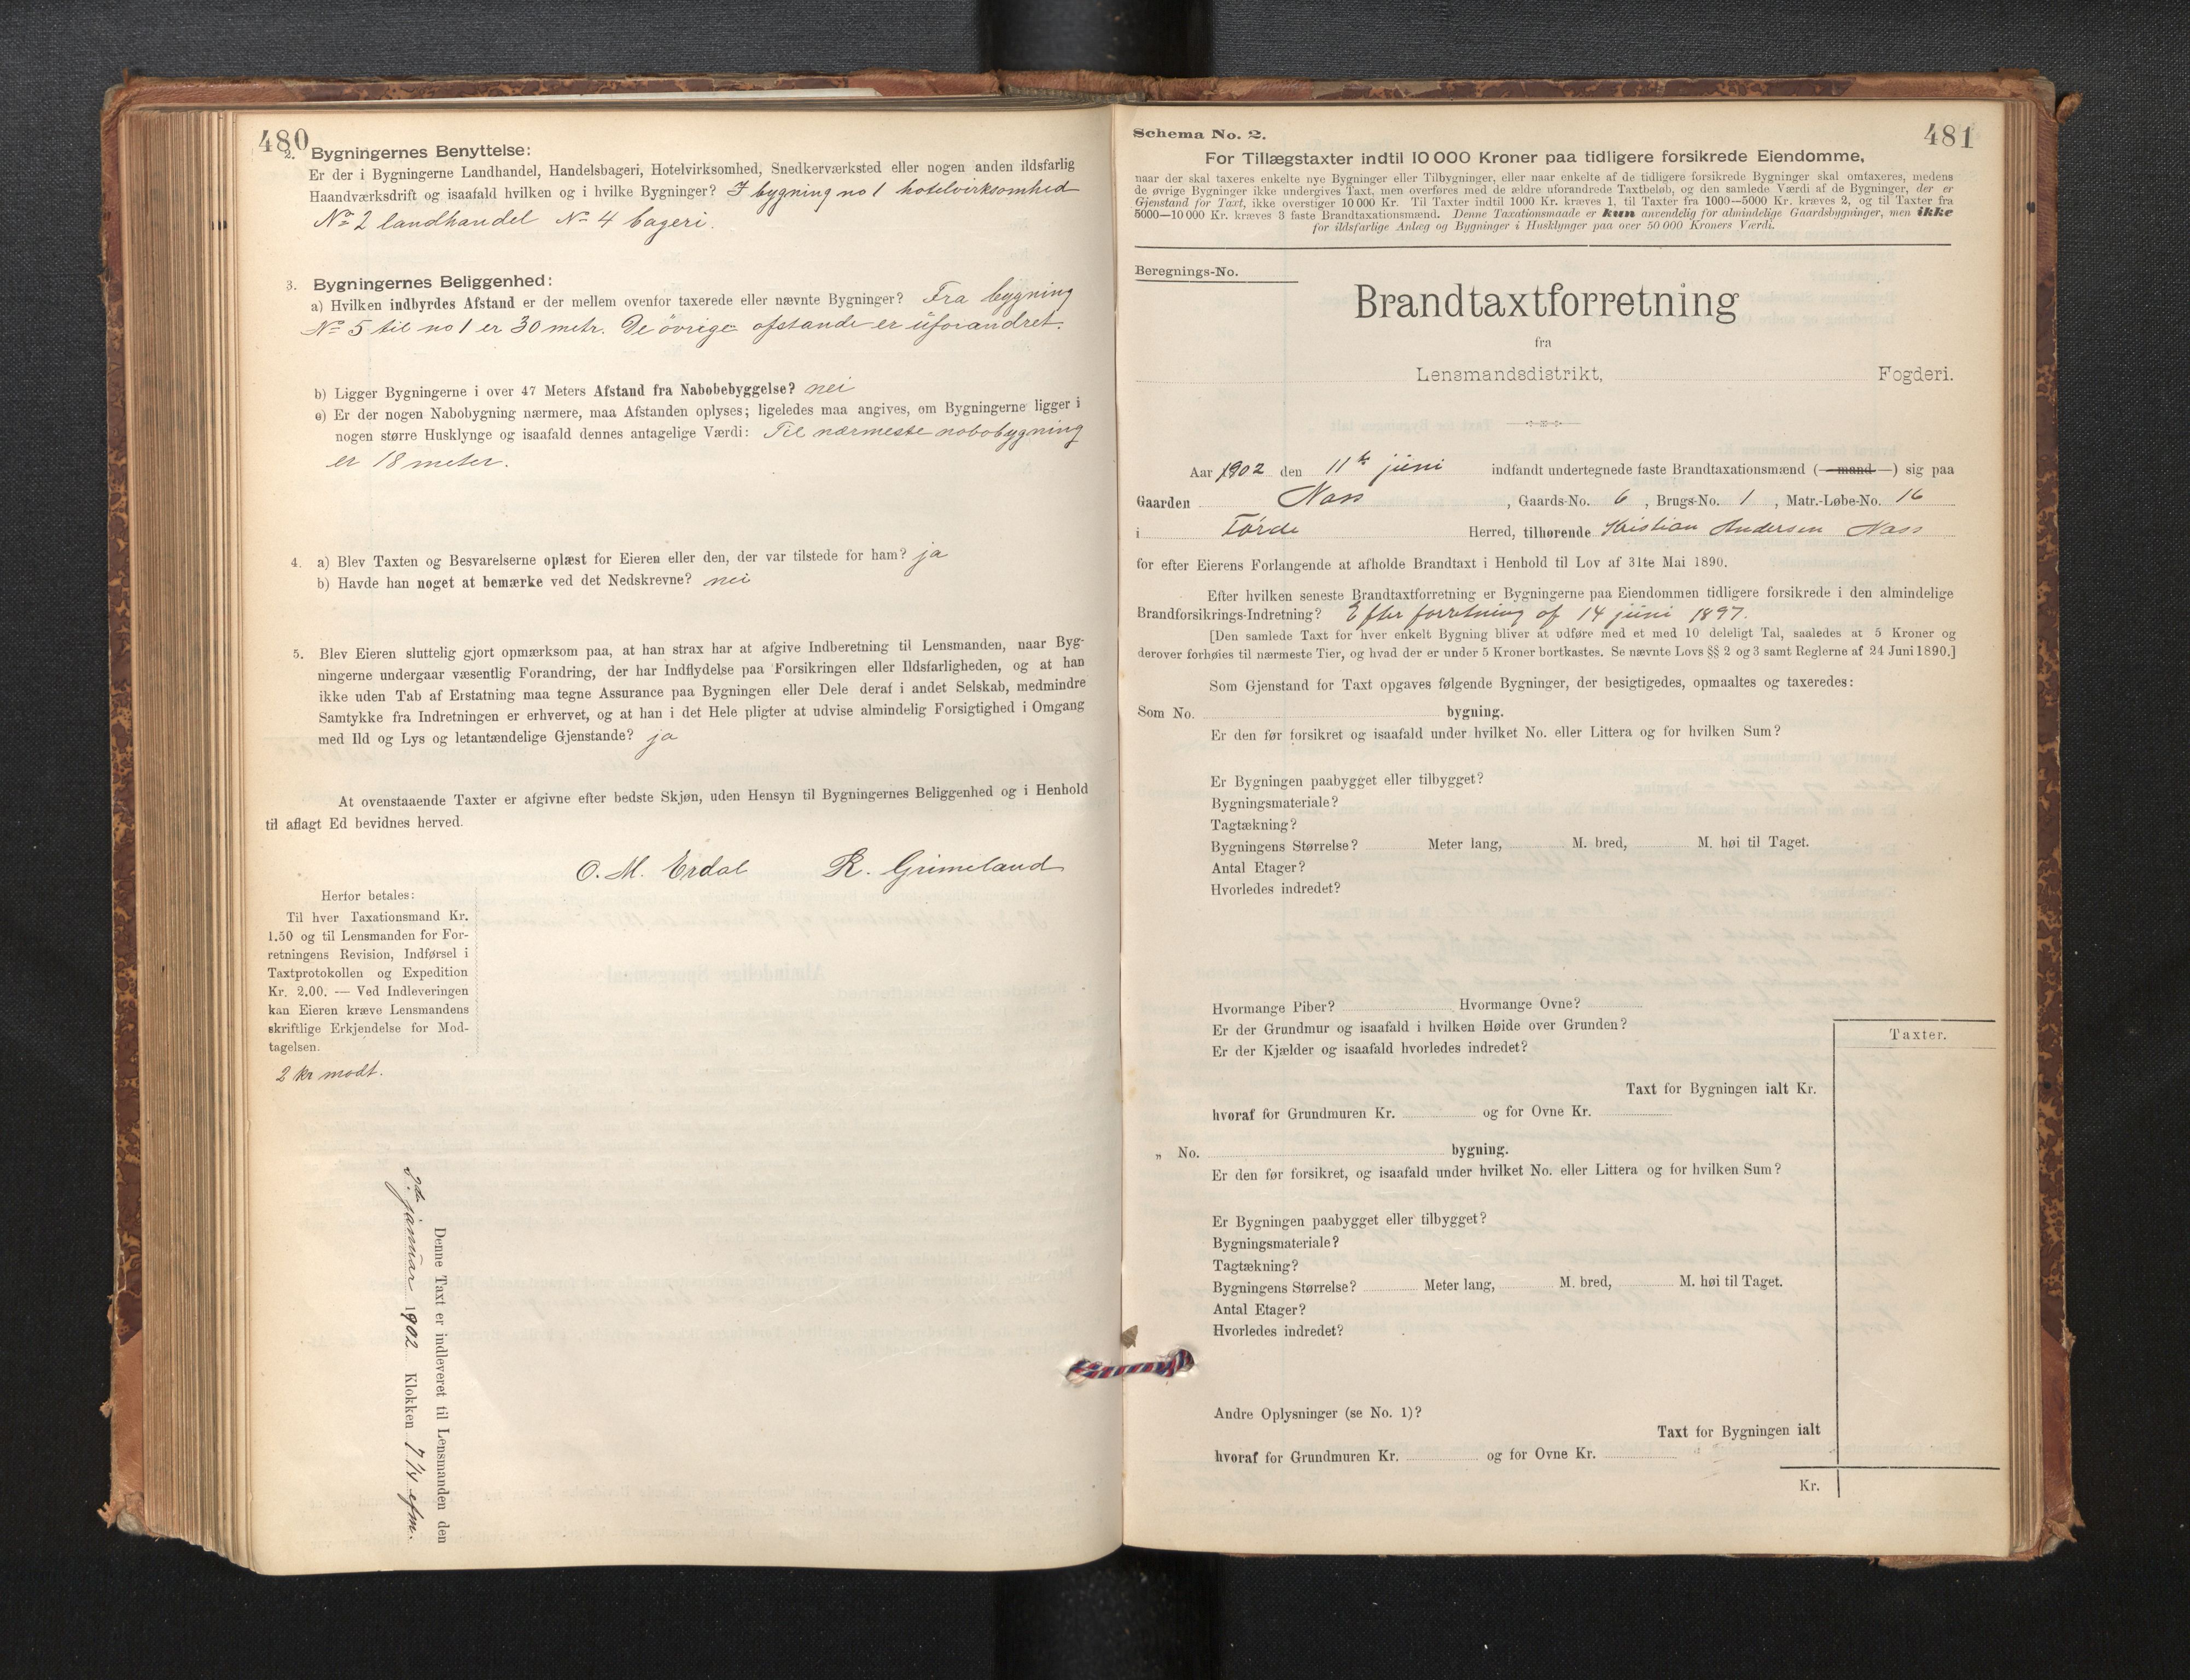 480
2. Bygningernes Benyttelse:
Er der i Bygningerne Landhandel, Handelsbageri, Hotelvirksomhed, Snedkerværksted eller nogen anden ildsfarlig
Haandværksdrift og isaafald hvilken og i hvilke Bygninger? I bygning no 1 hotelvirksomhed
No 2 landhandel No 4 bageri.
3. Bygningernes Beliggenhed:
a) Hvilken indbyrdes Afstand er der mellem ovenfor taxerede eller nævnte Bygninger? Fra bygning
No 5 til no 1 er 30 metr. De övrige afstande er uforandret.
b) Ligger Bygningerne i over 47 Meters Afstand fra Nabobebyggelse? nei
c) Er der nogen Nabobygning nærmere, maa Afstanden oplyses; ligeledes maa angives, om Bygningerne ligger i
nogen større Husklynge og isaafald dennes antagelige Værdi: Til nærmeste nabobygning
er 18 meter.
4. a) Blev Taxten og Besvarelserne oplæst for Eieren eller den, der var tilstede for ham? ja
b) Havde han noget at bemærke ved det Nedskrevne? nei
5. Blev Eieren sluttelig gjort opmærksom paa, at han strax har at afgive Indberetning til Lensmanden, naar Byg-
ningerne undergaar væsentlig Forandring, der har Indflydelse paa Forsikringen eller Ildsfarligheden, og at han
ikke uden Tab af Erstatning maa tegne Assurance paa Bygningen eller Dele deraf i andet Selskab, medmindre
Samtykke fra Indretningen er erhvervet, og at han i det Hele pligter at udvise almindelig Forsigtighed i Omgang
med Ild og Lys og letantændelige Gjenstande? ja
At ovenstaaende Taxter er afgivne efter bedste Skjøn, uden Hensyn til Bygningernes Beliggenhed og i Henhold
til aflagt Ed bevidnes herved.
O. M. Erdal R. Grimeland
Herfor betales:
Til hver Taxationsmand Kr.
1.50 og til Lensmanden for For-
retningens Revision, Indførsel i
Taxtprotokollen og Expedition
Kr. 2.00. — Ved Indleveringen
kan Eieren kræve Lensmandens
skriftlige Erkjendelse for Mod-
tagelsen.
2 kr modt.
Denne Taxt er indleveret til Lensmanden den
januar 1902 Klokken 7 1/2 efm.
Schema No. 2.
481
For Tillægstaxter indtil 10 000 Kroner paa tidligere forsikrede Eiendomme,
naar der skal taxeres enkelte nye Bygninger eller Tilbygninger, eller naar enkelte af de tidligere forsikrede Bygninger skal omtaxeres, medens
de øvrige Bygninger ikke undergives Taxt, men overføres med de ældre uforandrede Taxtbeløb, og den samlede Værdi af de Bygninger, der er
Gjenstand for Taxt, ikke overstiger 10 000 Kr. Til Taxter indtil 1000 Kr. kræves 1, til Taxter fra 1000—5000 Kr. kræves 2, og til Taxter fra
5000—10 000 Kr. kræves 3 faste Brandtaxationsmænd. Denne Taxationsmaade er kun anvendelig for almindelige Gaardsbygninger, men ikke
for ildsfarlige Anlæg og Bygninger i Husklynger paa over 50 000 Kroners Værdi.
Beregnings-No.
Brandtaxtforretning
fra
Lensmandsdistrikt, Fogderi.
Aar 1902 den 11te juni indfandt undertegnede faste Brandtaxationsmænd (mand) sig paa
Gaarden Nass, Gaards-No. 6, Brugs-No. 1, Matr.-Løbe-No. 16
i Förde Herred, tilhørende Kristian Andersen Nass
for efter Eierens Forlangende at afholde Brandtaxt i Henhold til Lov af 31te Mai 1890.
Efter hvilken seneste Brandtaxtforretning er Bygningerne paa Eiendommen tidligere forsikrede i den almindelige
Brandforsikrings-Indretning? Efter forretning af 14 juni 1897.
[Den samlede Taxt for hver enkelt Bygning bliver at udføre med et med 10 deleligt Tal, saaledes at 5 Kroner og
derover forhøies til nærmeste Tier, og hvad der er under 5 Kroner bortkastes. Se nævnte Lovs §§ 2 og 3 samt Reglerne af 24 Juni 1890.]
Som Gjenstand for Taxt opgaves følgende Bygninger, der besigtigedes, opmaaltes og taxeredes:
Som No. bygning.
Er den før forsikret og isaafald under hvilket No. eller Littera og for hvilken Sum?
Er Bygningen paabygget eller tilbygget?
Bygningsmateriale?
Tagtækning?
Bygningens Størrelse? Meter lang, M. bred, M. høi til Taget.
Antal Etager?
Hvorledes indredet?
Hvormange Piber? Hvormange Ovne?
Er der Grundmur og isaafald i hvilken Høide over Grunden?
Er der Kjælder og isaafald hvorledes indredet?
Taxter.
Taxt for Bygningen ialt Kr.
hvoraf for Grundmuren Kr. og for Ovne Kr.
„ No. bygning.
Er den før forsikret, og isaafald under hvilket No. eller Littera og for hvilken Sum?
Er Bygningen paabygget eller tilbygget?
Bygningsmateriale?
Tagtækning?
Bygningens Størrelse? Meter lang, M. bred, M. høi til Taget.
Antal Etager?
Hvorledes indredet?
Andre Oplysninger (se No. 1)?
Taxt for Bygningen ialt
hvoraf for Grundmuren Kr. og for Ovne Kr.
Kr.